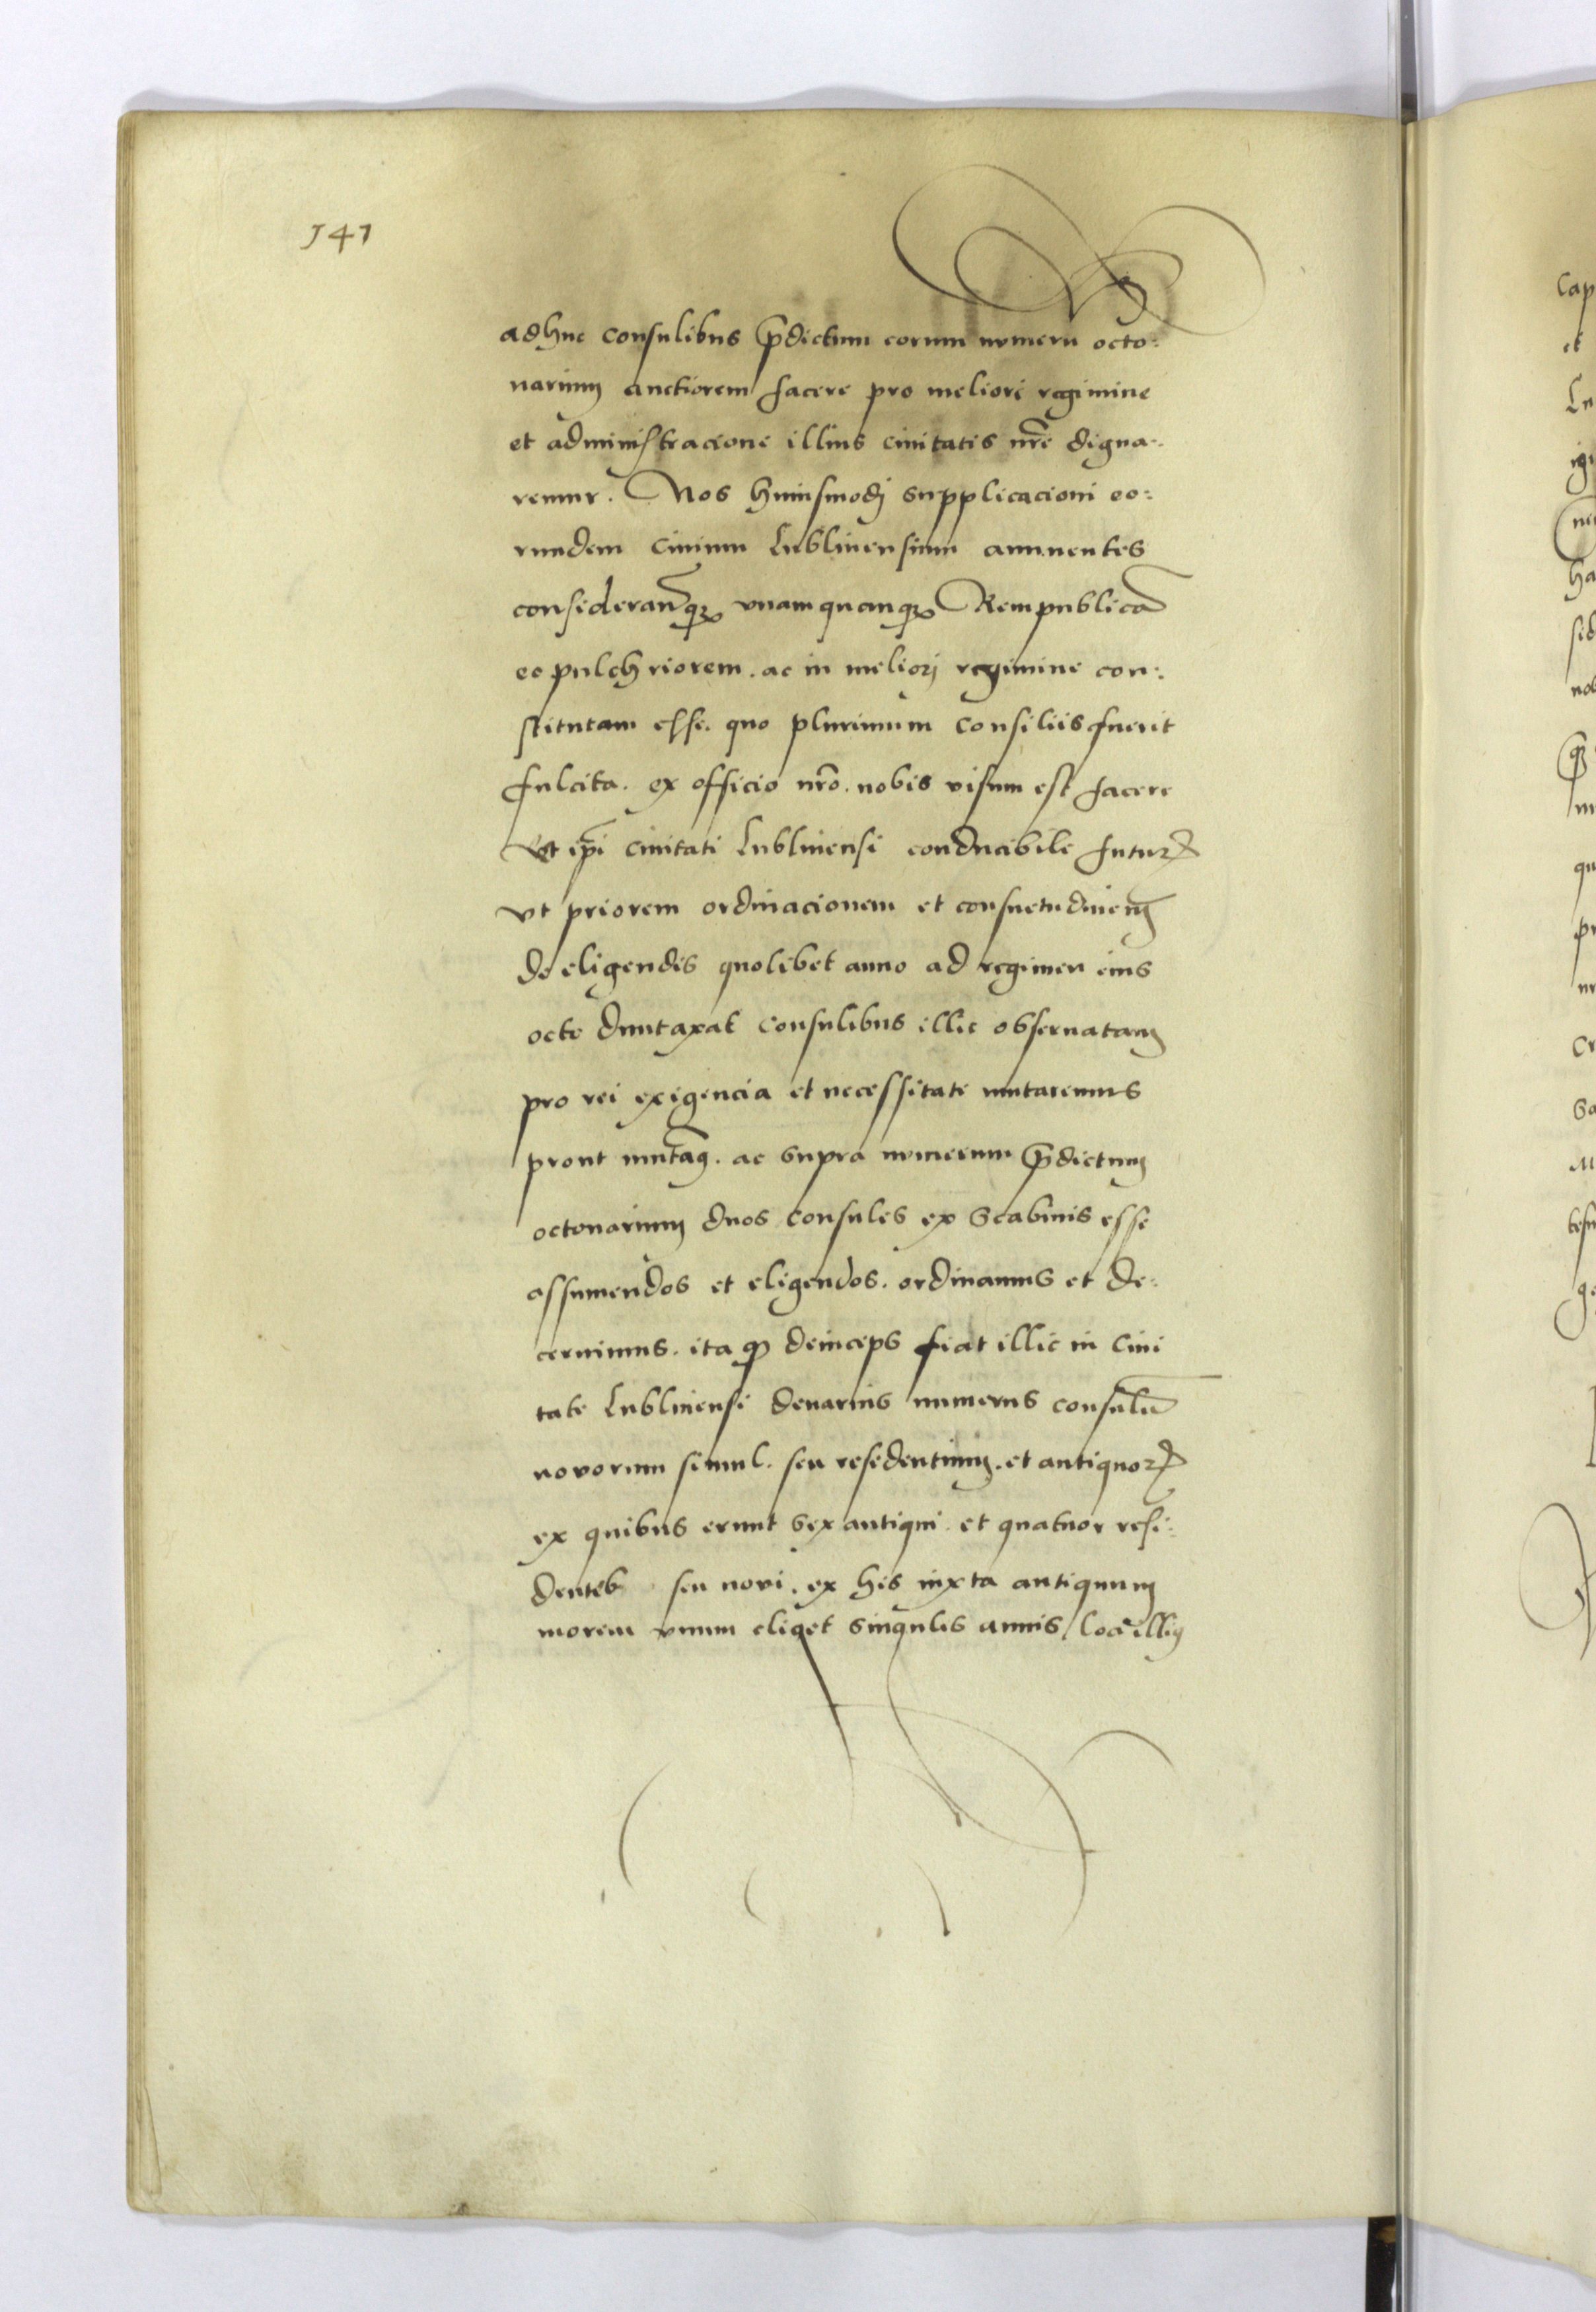 141
adhuc consulibus p̄dictum eorum numerū octo:
narium auctiorem facere pro meliori regimine
et administracione illius ciuitatis nr̄e digna:
remur. Nos huiusmodj supplicacioni eo:
rundem ciuium Lublinensium annuentes
consideran̄tq vnamquanq Rempublicā
eo pulchriorem. ac in meliorj regimine con:
stitutam esse. quo plurimum consiliis fuerit
fulcita. ex officio nr̄o. nobis visum est facere
Et ip̄i ciuitati Lublinensi conducibile futurꝝ
vt priorem ordinacionem et consuetudinem
de eligendis quolibet anno ad regimen eius
octo duntaxat consulibus illic obseruatam
pro rei exigencia et necessitate mutaremus
prout mutam̄9. ac supra numerum p̄dictum
octonarium duos consules ex scabinis esse
assumendos et eligendos. ordinamus et de:
cernimus. ita qꝫ deinceps fiat illic in Ciui
tate Lublinensi denarius numerus consulū
novorum simul. seu resedentium. et antiquoꝝ
ex quibus erunt sex antiqui. et quatuor resi:
dentes seu novi. ex his iuxta antiquum
morem vnum eliget singulis annis loci illi9
Cap
et
Lu